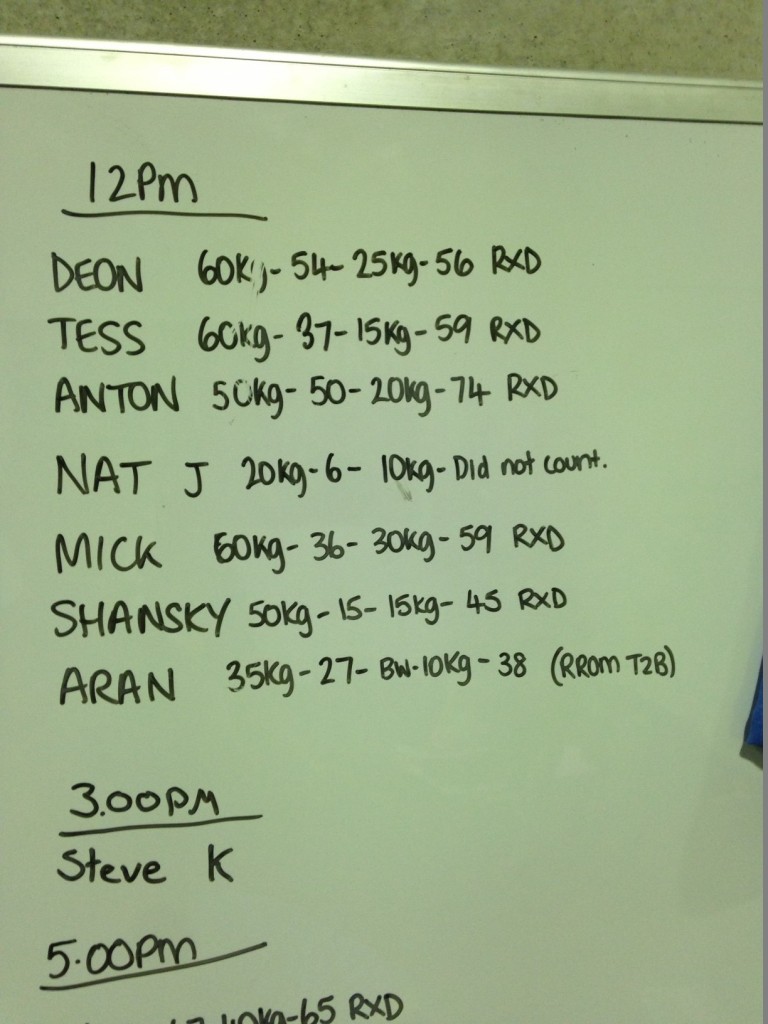 12Pm
DEON 60Kg- 54- 25kg- 56 RXD
TESS 60kg- 37- 15Kg- 59 RXD
ANTON 50kg- 50- 20kg- 74 RXD
NAT J 20kg- 6- 10kg- Did not count.
MICK 60kg- 36- 30kg- 59 RXD
SHANSKY 50Kg- 15- 15kg- 45 RXD
ARAN 35Kg- 27- BW-10Kg- 38 (RROM T2B)
3.00PM
Steve K
5.00PM
40kg-65 RXD